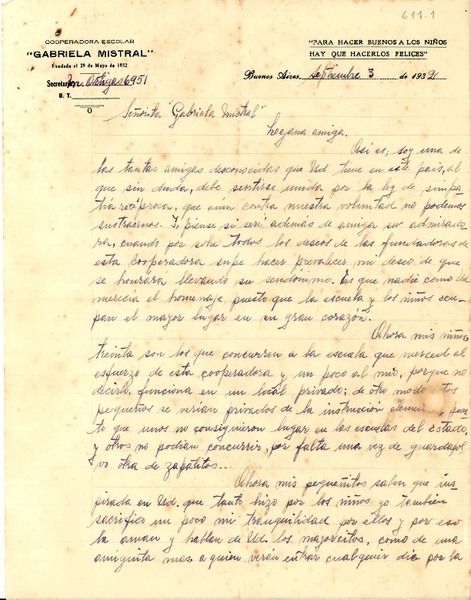 611.1
COOPERADORA ESCOLAR
"GABRIELA MISTRAL"
Fundada el 29 de Mayo de 1932
Secretaría: Obligado 6951
U. T.
"PARA HACER BUENOS A LOS NIÑOS
HAY QUE HACERLOS FELICES"
Buenos Aires, Septiembre 3 de 193
Señorita "Gabriela Mistral"
Lejana amiga.
Así es; soy una de
las tantas amigas desconocidas que Ud tiene en este país, al
que sin duda, debe sentirse unida por la ley de simpa-
tía recíproca, que aún contra nuestra voluntad no podemos
sustraernos. Y piense si seré además de amiga su admirado-
ra, cuando por sobre todos los deseos de las fundadoras de
esta cooperadora supe hacer prevalecer mi deseo de que
se honrara llevando su seudónimo. Es que nadie como Ud
merecía el homenaje, puesto que la escuela y los niños ocu-
pan el mayor lugar en su gran corazón.
Ahora mis niños
treinta son los que concurren a la escuela que merced al
esfuerzo de esta cooperadora y un poco al mío, porque no
decirlo, funciona en un local privado; de otro modo estos
pequeños se verían privados de la instrucción pues-
to que unos no consiguieron lugar en las escuelas del Estado,
y otros no podían concurrir, por falta una vez de guardapol-
vo otra de zapatitos...
Ahora mis pequeñitos saben que ins-
pirada en Usd. que tanto hizo por los niños yo también
sacrifico un poco mi tranquilidad por ellos y por eso
la aman y hablan de Ud. los mayorcitos, como de una
amiguita mas a quien verán entrar cualquier día por la